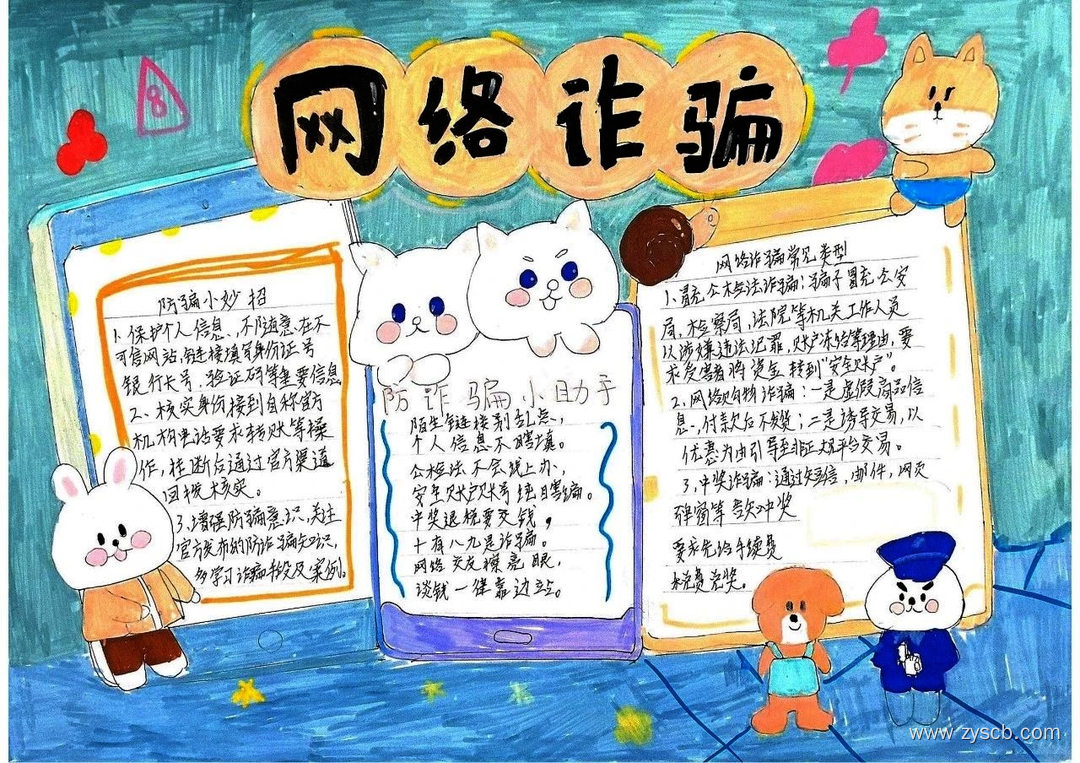 网络诈骗
防骗小妙招
1、保护个人信息、不随意在不
可信网站,链接填写身份证号
银行卡号、验证码等重要信息
2、核实身份接到自称官方
机构电话要求转账等操
作,挂断后通过官方渠道
回拨核实。
3、增强防骗意识,关注
官方发布的防诈骗知识,
多学习诈骗手段及案例。
防诈骗小助手
陌生链接别乱点,
个人信息不瞎填。
公检法不会线上办,
安全账户账号纯瞎骗。
中奖退税要交钱,
十有八九是诈骗。
网络交友擦亮眼,
谈钱一律靠边站。
网络诈骗常见类型
1、冒充公检法诈骗:骗子冒充公安
局,检察局,法院等机关工作人员
以涉嫌违法犯罪,账户冻结等理由,要
求受害者将资金转到"安全账户"。
2、网络购物诈骗:一是虚假商品信
息,付款后不发货;二是诱导交易,以
优惠为由引导至非正规平台交易。
3,中奖诈骗:通过短信,邮件,网页
弹窗等告知中奖
要求先给手续费
税费兑奖。
8
www.zyscb.com